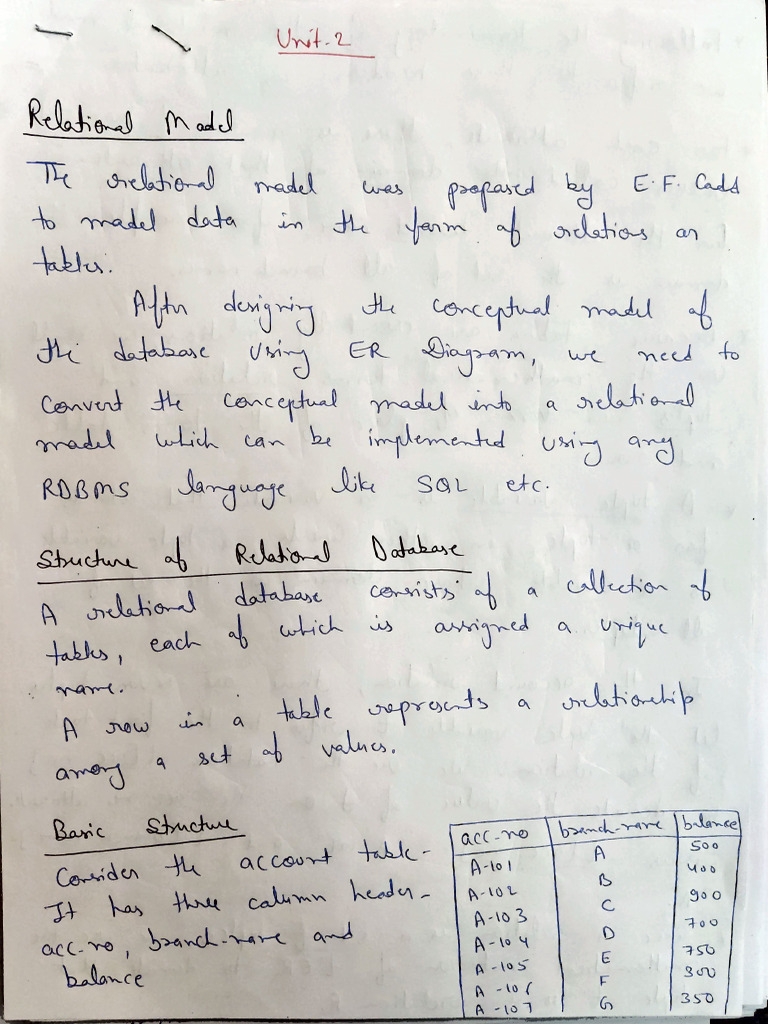 Unit-2
Relational Model
The relational model was proposed by E.F. Codd
to model data in the form of relations or
tables.
After designing the conceptual model of
the database using ER Diagram, we need to
convert the conceptual model into a relational
model which can be implemented using any
RDBMS language like SQL etc.
Structure of Relational Database
A relational database consists of a collection of
tables, each of which is assigned a unique
name.
A row in a table represents a relationship
among a set of values.
Basic Structure
Consider the account table-
It has three column header-
acc-no, branch-name and
balance
acc-no branch-name balance
A-101 A 500
A-102 B 400
A-103 C 900
A-104 D 700
A-105 E 750
A-106 F 300
A-107 G 350